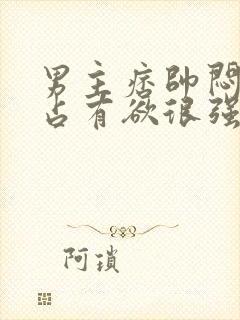 男主痞帅闷
占有欲很强
阿琐